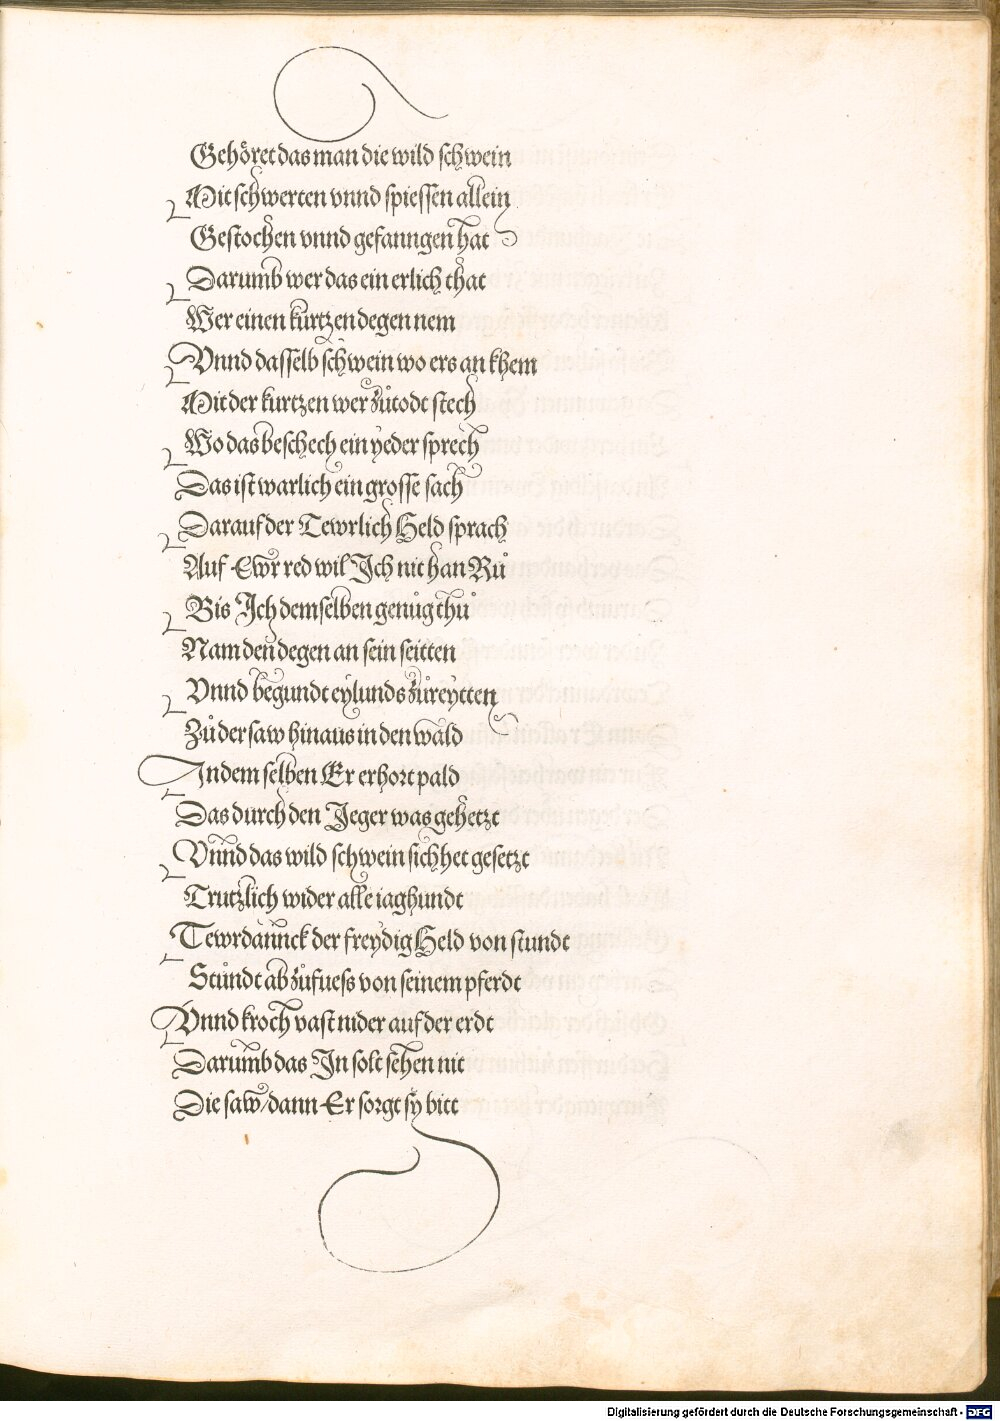 Gehöret das man die wild schwein
Mit schwerten vnnd spiessen allein
Gestochen vnnd gefanngen hat
Darumb wer das ein erlich that
Wer einen kurtzen degen nem
Vnnd dasselb schwein wo ers an khem
Mit der kurtzen wer zů todt stech
Wo das beschech ein yeder sprech
Das ist warlich ein grosse sach
Darauf der Tewrlich Held sprach
Auf Ewr red wil Ich nit han Rů
Bis Ich demselben genůg thů
Nam den degen an sein seitten
Vnnd begundt eylunds zů reytten
Zů der saw hinaus in den wald
In dem selben Er erhort pald
Das durch den Jeger was gehetzt
Vnnd das wild schwein sich het gesetzt
Trutzlich wider alle iaghundt
Tewrdannck der freydig Held von stundt
Stůndt ab zů fuess von seinem pferdt
Vnnd kroch vast nider auf der erdt
Darumb das In solt sehen nit
Die saw/dann Er sorgt sy bitt
Digitalisierung gefördert durch die Deutsche Forschungsgemeinschaft - DFG